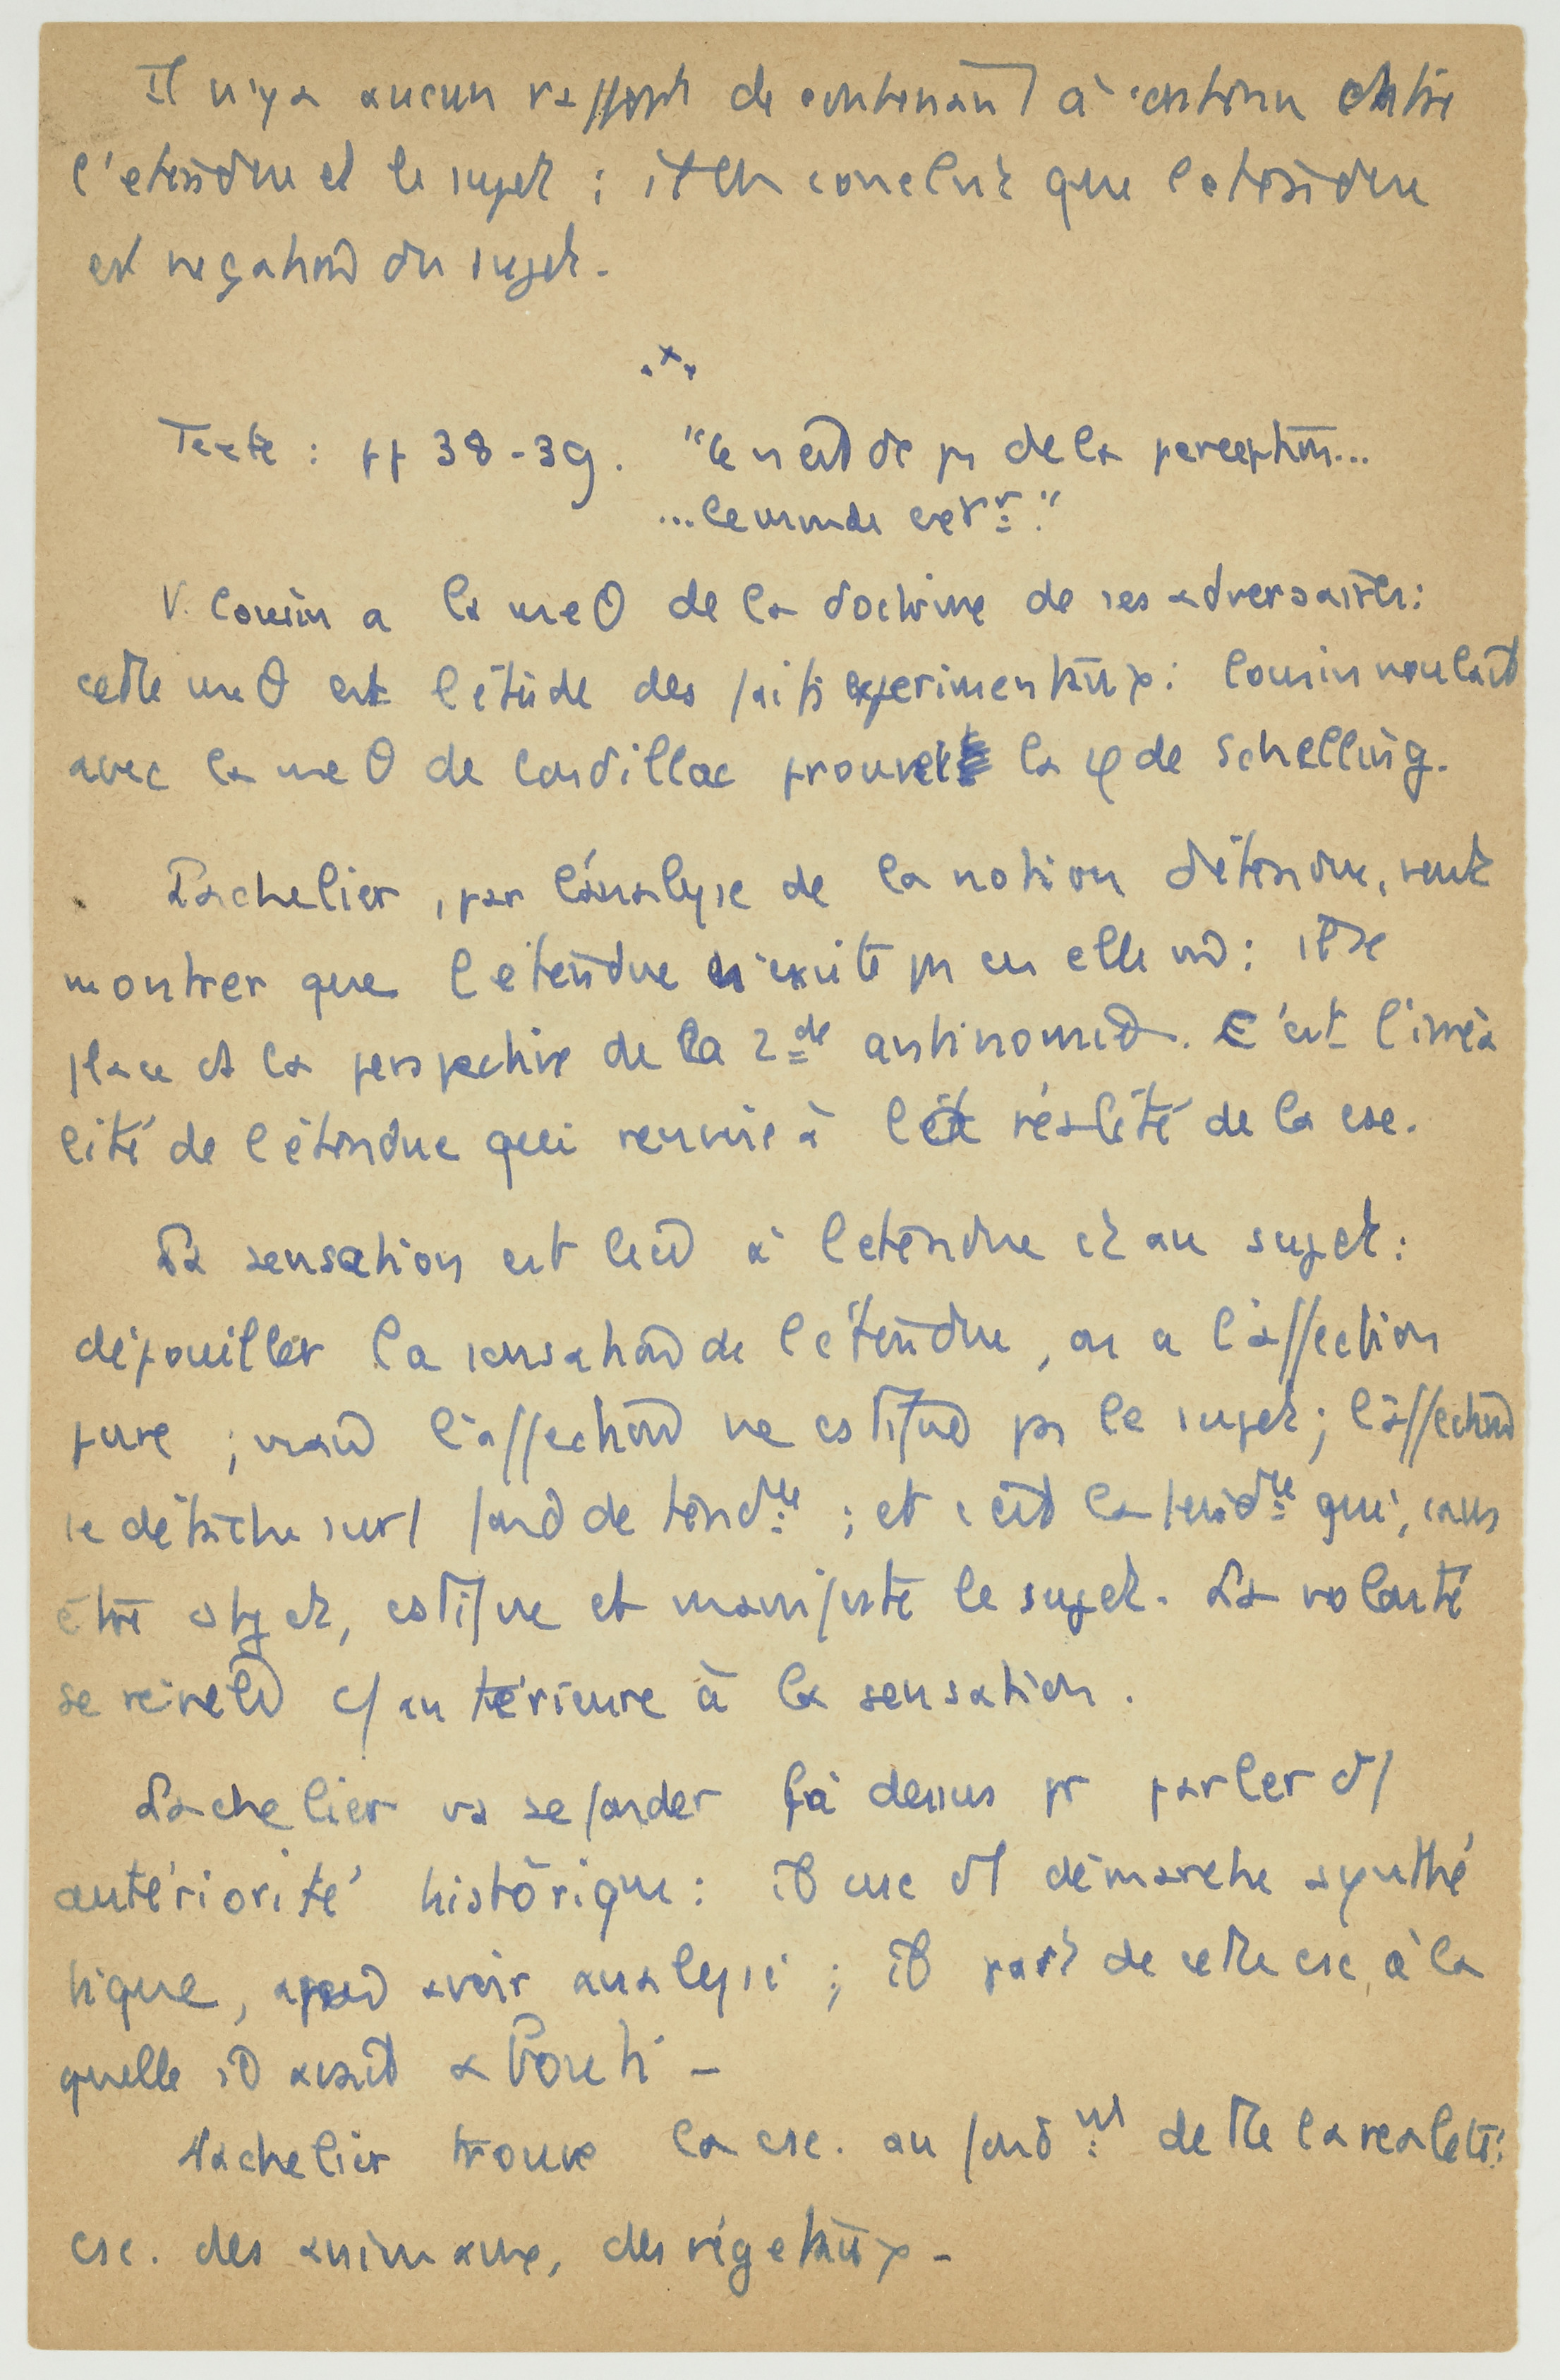 Il n'y a aucun rapport de contenant à contenu entre
l'etendue et le sujet ; il en conclut que l'etendue
est negation du sujet.
Texte : pp 38-39. "Ce n'est de ps de la perception...
... le monde extr."
V. Cousin a la meθ de la doctrine de ses adversaires :
cette meθ est l'étude des faits experimentaux : Cousin voulait
avec la meθ de Condillac prouver la φ de Schelling.
Lachelier, par l'analyse de la notion d'étendue, veut
montrer que l'etendue n'existe ps en elle m : il se
place ds la perspective de la 2de antinomie. C'est l'irréa
lité de l'étendue qui renvoie à la réalité de la cse.
La sensation est liée à l'etendue et au sujet :
dépouiller la sensation de l'étendue, on a l'affection
pure ; mais l'affection ne cstitue ps le sujet ; l'affection
se détache sur / fond de tendce ; et c'est la tendce qui, sans
être objet, cstitue et manifeste le sujet. La volonté
se révèle c/ antérieure à la sensation.
Lachelier va se fonder là dessus pr parler d/
antériorité historique : il use d/ démarche synthé
tique, après avoir analysé ; il part de cette cse, à la
quelle il avait abouti -
Lachelier trouve la cse. au fond mt de tte la realité :
cse. des animaux, des végétaux -